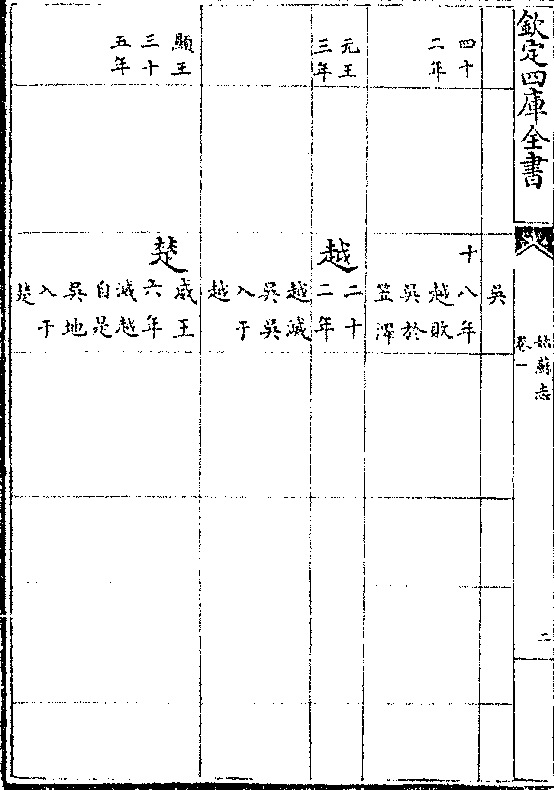 欽定四庫全書
姑蘇志
卷一
二
吳
四十
二年
十八年
越敗
吳於
笠澤
元王
三年
越
二十
二年
越滅
吳吳
入于
越
顯王
三十
五年
楚
威王
六年
滅越
自是
吳地
入于
楚